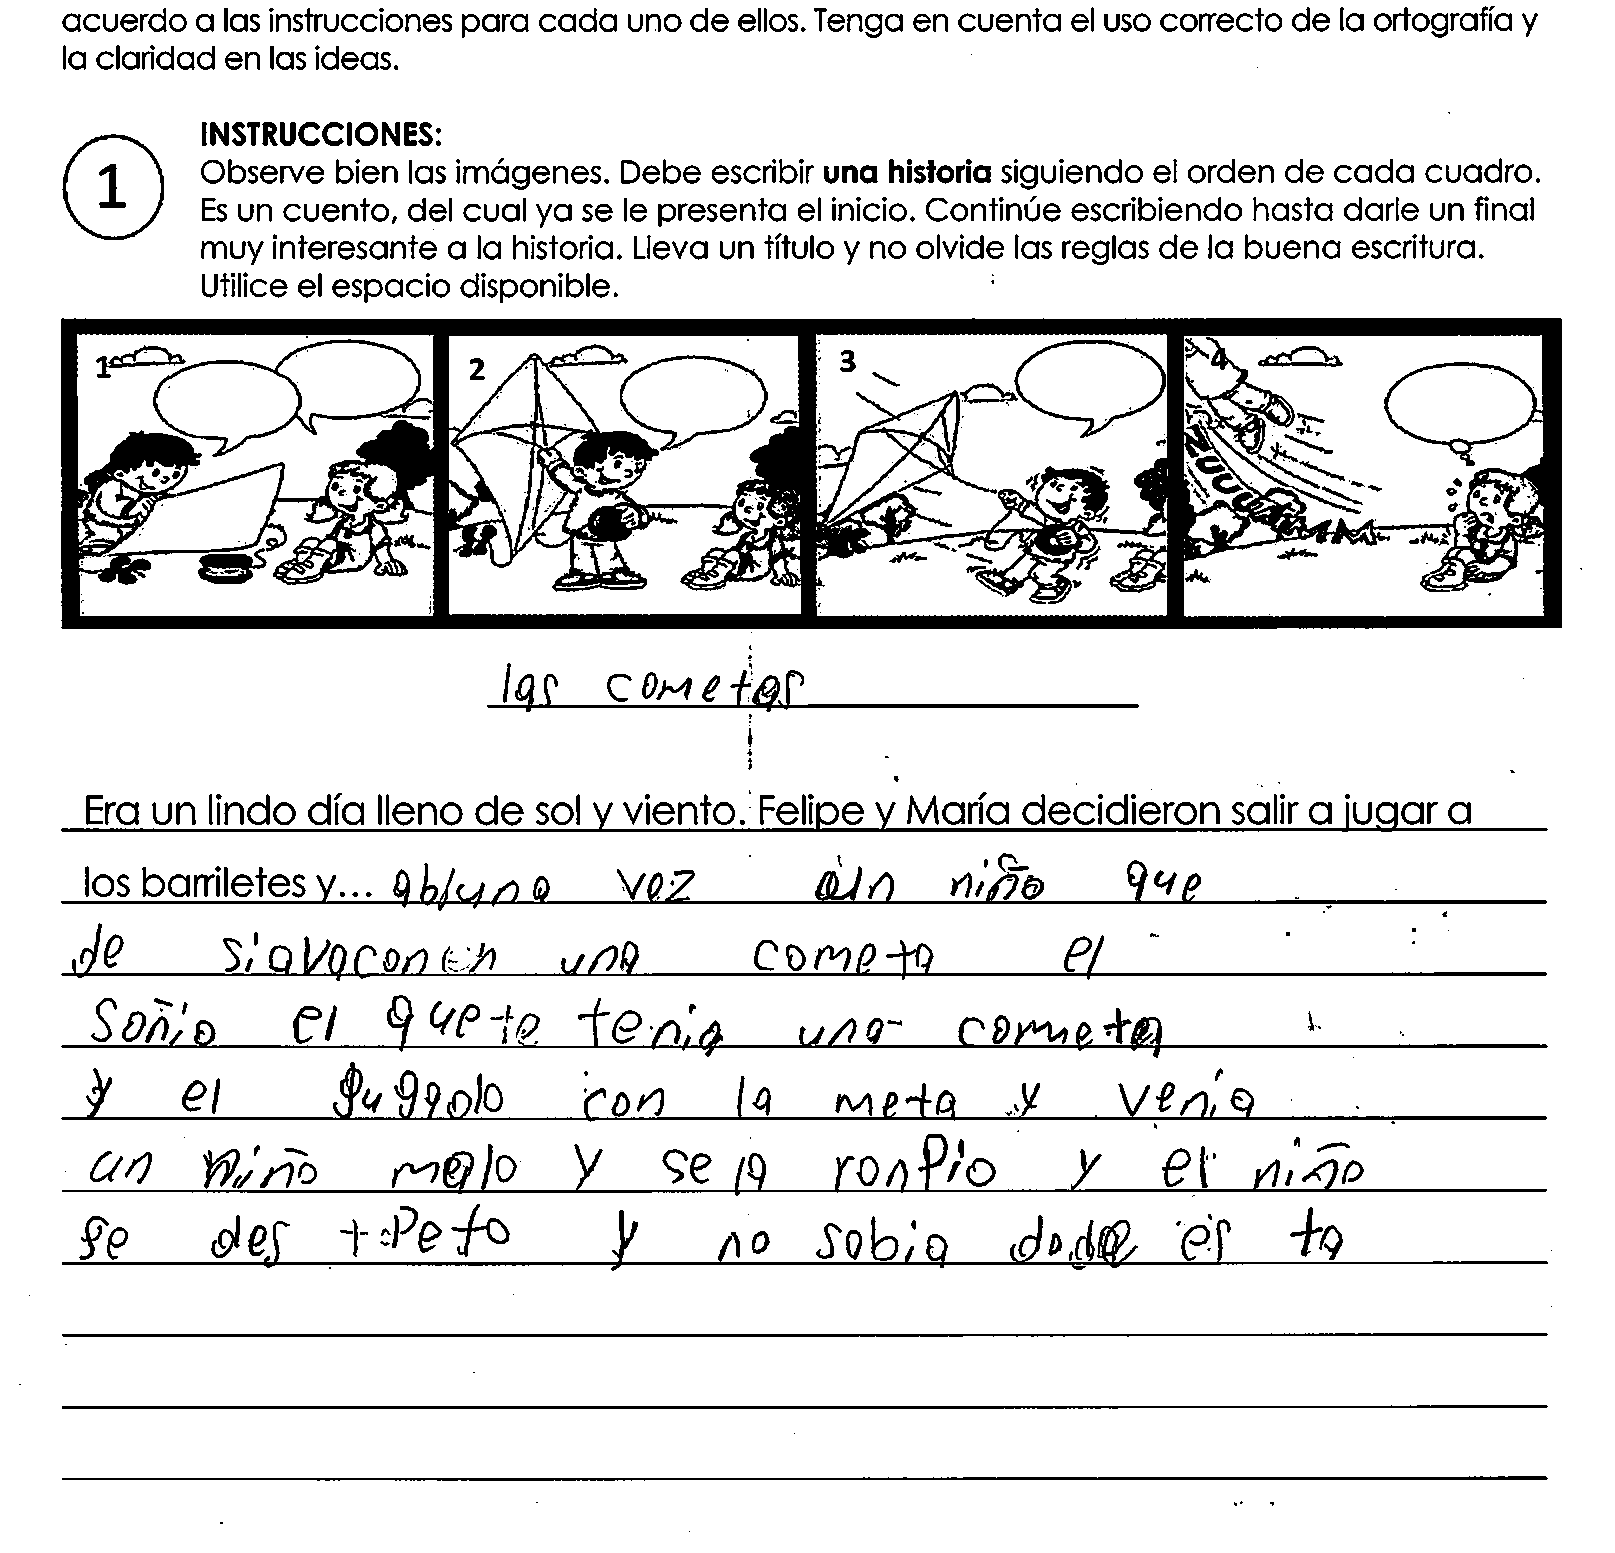 acuerdo a las instrucciones para cada uno de ellos. Tenga en cuenta el uso correcto de la ortografía y
la claridad en las ideas.
1
INSTRUCCIONES:
Observe bien las imágenes. Debe escribir una historia siguiendo el orden de cada cuadro.
Es un cuento, del cual ya se le presenta el inicio. Continúe escribiendo hasta darle un final
muy interesante a la historia. Lleva un título y no olvide las reglas de la buena escritura.
Utilice el espacio disponible.
1 2 3 4
las cometas
Era un lindo día lleno de sol y viento. Felipe y María decidieron salir a jugar a
los barriletes y... abiuna vez un niño que
de siavaconen una cometa el
soñio el quete tenia una cometa
y el guggolo con la meta y venia
un niño malo y se la ronpio y el niño
se des peto y no sabia dode es ta